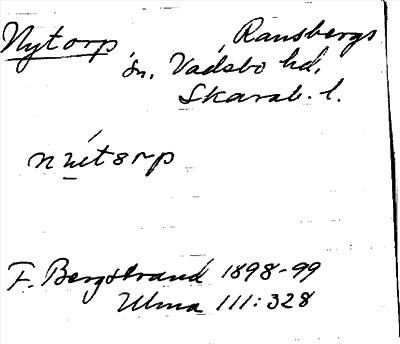 Nytorp Ransbergs
sn, Vadsbo hd,
Skarab. l.
F. Bergstrand 1898-99
Ulma 111:328